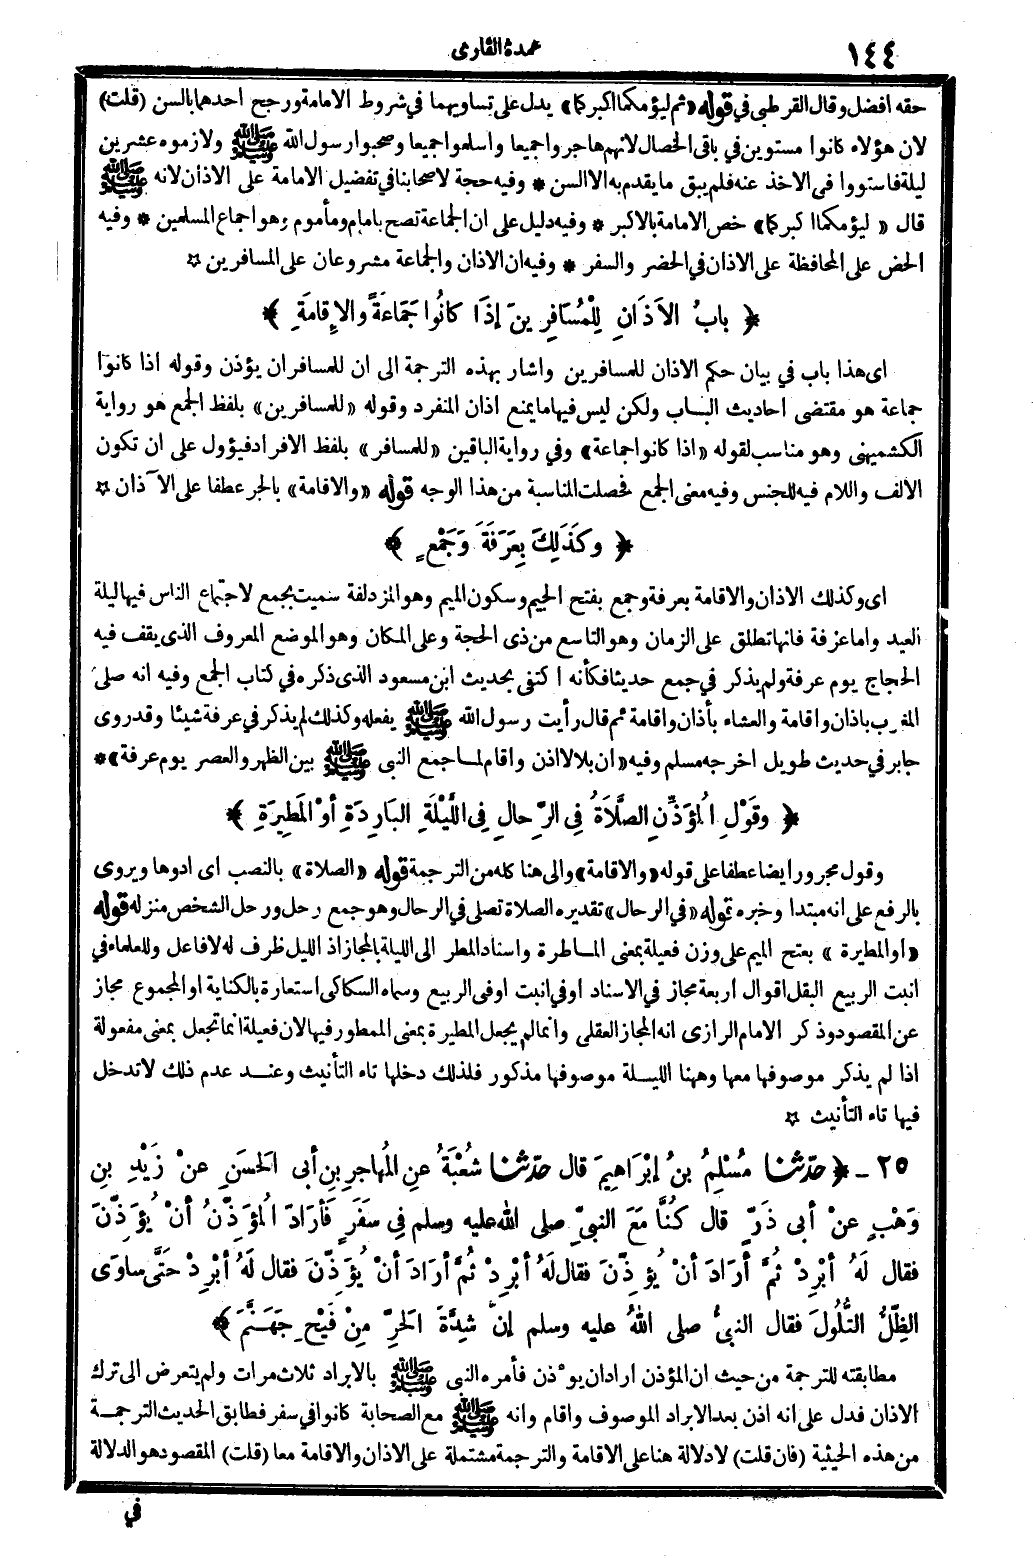 ١٤٤
عمدة القارى
حقه افضل وقال القرطبى في قوله «ثم ليؤمكما اكبركما» يدل على تساويهما في شروط الامامة ورجح احدهما بالسن (قلت)
لان هؤلاء كانوا مستوين في باقى الخصال لانهم هاجروا جميعا واسلموا جميعا وصحبوا رسول الله ﷺ ولازموه عشرين
ليلة فاستووا فى الاخذ عنه فلم يبق ما يقدم به الا السن * وفيه حجة لاصحابنا في تفضيل الامامة على الاذان لانه ﷺ
قال « ليؤمكما اكبركما» خص الامامة بالاكبر * وفيه دليل على ان الجماعة تصح بامام ومأموم وهو اجماع المسلمين * وفيه
الحض على المحافظة على الاذان في الحضر والسفر * وفيه ان الاذان والجماعة مشروعان على المسافرين ☆
﴿ بابُ الاَذَانِ لِلْمُسَافِرِينَ إذَا كانُوا جَمَاعَةً والإقامَةِ ﴾
اى هذا باب في بيان حكم الاذان للمسافرين واشار بهذه الترجمة الى ان للمسافر ان يؤذن وقوله اذا كانوا
جماعة هو مقتضى احاديث الباب ولكن ليس فيها ما يمنع اذان المنفرد وقوله «للمسافرين» بلفظ الجمع هو رواية
الكشميهنى وهو مناسب لقوله «اذا كانوا جماعة» وفي رواية الباقين «للمسافر» بلفظ الافراد فيؤول على ان تكون
الالف واللام فيه للجنس وفيه معنى الجمع فحصلت المناسبة من هذا الوجه قوله «والاقامة» بالجر عطفا على الآذان ☆
﴿ وكَذَلِكَ بِعَرَفَةَ وَجَمْعٍ ﴾
اى وكذلك الاذان والاقامة بعرفة وجمع بفتح الجيم وسكون الميم وهو المزدلفة سميت بجمع لاجتماع الناس فيها ليلة
العيد واما عرفة فانها تطلق على الزمان وهو التاسع من ذى الحجة وعلى المكان وهو الموضع المعروف الذى يقف فيه
الحجاج يوم عرفة ولم يذكر في جمع حديثا فكأنه اكتفى بحديث ابن مسعود الذى ذكره في كتاب الجمع وفيه انه صلى
المغرب باذان واقامة والعشاء بأذان واقامة ثم قال رأيت رسول الله ﷺ يفعله وكذلك لم يذكر في عرفة شيئا وقد روى
جابر في حديث طويل اخرجه مسلم وفيه «ان بلالا اذن واقام لما جمع النبى ﷺ بين الظهر والعصر يوم عرفة» *
﴿ وقَوْلِ المُؤَذِّنِ الصَّلاَةُ فِى الرِّحالِ فِى اللَّيْلَةِ البَارِدَةِ أوْ المَطِيرَةِ ﴾
وقول مجرور ايضا عطفا على قوله «والاقامة» والى هنا كله من الترجمة قوله «الصلاة» بالنصب اى ادوها ويروى
بالرفع على انه مبتدا وخبره قوله «في الرحال» تقديره الصلاة تصلى في الرحال وهو جمع رحل ورحل الشخص منزله قوله
«او المطيرة » بفتح الميم على وزن فعيلة بمعنى الماطرة واسناد المطر الى الليلة بالمجاز اذ الليل ظرف له لا فاعل وللعلماء في
انبت الربيع البقل اقوال اربعة مجاز في الاسناد او في انبت او فى الربيع وسماه السكاكى استعارة بالكناية او المجموع مجاز
عن المقصود وذكر الامام الرازى انه المجاز العقلى وانما لم يجعل المطيرة بمعنى الممطور فيها لان فعيلة انما تجعل بمعنى مفعولة
اذا لم يذكر موصوفها معها وههنا الليلة موصوفها مذكور فلذلك دخلها تاء التأنيث وعند عدم ذلك لاتدخل
فيها تاء التأنيث ☆
٢٥ ـ ﴿ حدّثنا مُسْلِمُ بنُ إبْرَاهِيمَ قال حدّثنا شُعْبَةُ عنِ المُهاجِرِ بنِ أبى الحَسَنِ عنْ زَيْدِ بنِ
وَهْبٍ عنْ أبى ذَرٍّ قال كُنَّا مَعَ النبىِّ صلى الله عليه وسلم فِى سفَرٍ فَأرَادَ المُؤَذِّنُ أنْ يُؤَذِّنَ
فقال لَهُ أبْرِدْ ثُمَّ أرَادَ أنْ يُؤَذِّنَ فقال لَهُ أبْرِدْ ثُمَّ أرَادَ أنْ يُؤَذِّنَ فقال لَهُ أبْرِدْ حتَّى ساوَى
الظِّلُّ التُّلُولَ فقال النبىُّ صلى اللهُ عليه وسلم إنَّ شِدَّةَ الحَرِّ مِنْ فَيْحِ جَهَنَّمَ ﴾
مطابقته للترجمة من حيث ان المؤذن اراد ان يؤذن فأمره النبى ﷺ بالابراد ثلاث مرات ولم يتعرض الى ترك
الاذان فدل على انه اذن بعد الابراد الموصوف واقام وانه ﷺ مع الصحابة كانوا في سفر فطابق الحديث الترجمة
من هذه الحيثية (فان قلت) لا دلالة هنا على الاقامة والترجمة مشتملة على الاذان والاقامة معا (قلت) المقصود هو الدلالة
في